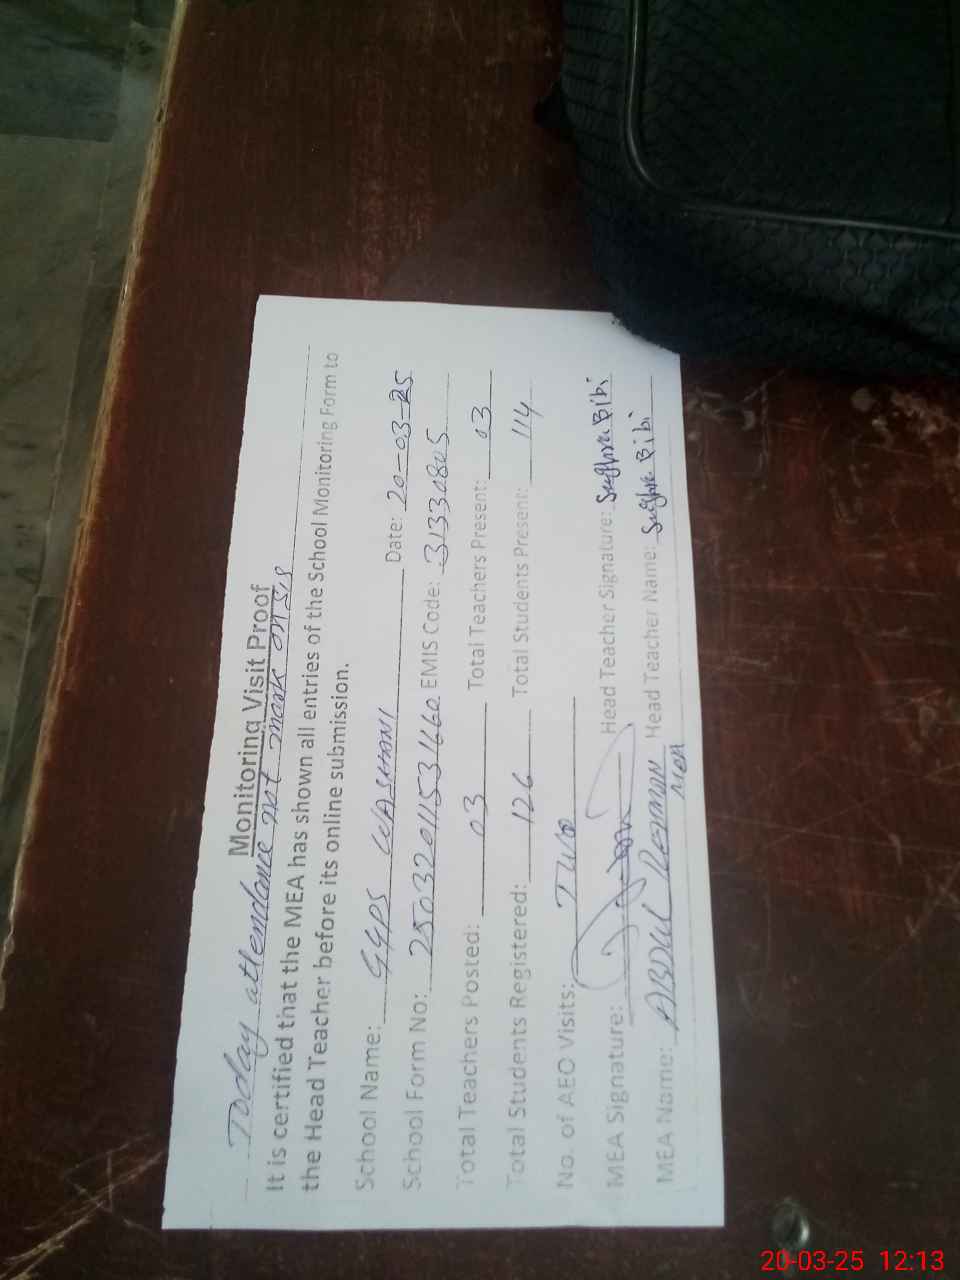 Monitoring Visit Proof
Today attendance not mark on SIS
It is certified that the MEA has shown all entries of the School Monitoring Form to
the Head Teacher before its online submission.
School Name: GGPS WASHANI Date: 20-03-25
School Form No: 25032011531660 EMIS Code: 31330805
Total Teachers Posted: 03 Total Teachers Present: 03
Total Students Registered: 126 Total Students Present: 114
No. of AEO Visits: Two
MEA Signature: Head Teacher Signature: Sughra Bibi
MEA Name: ABDUL REHMAN Head Teacher Name: Sughra Bibi
MEA
20-03-25 12:13